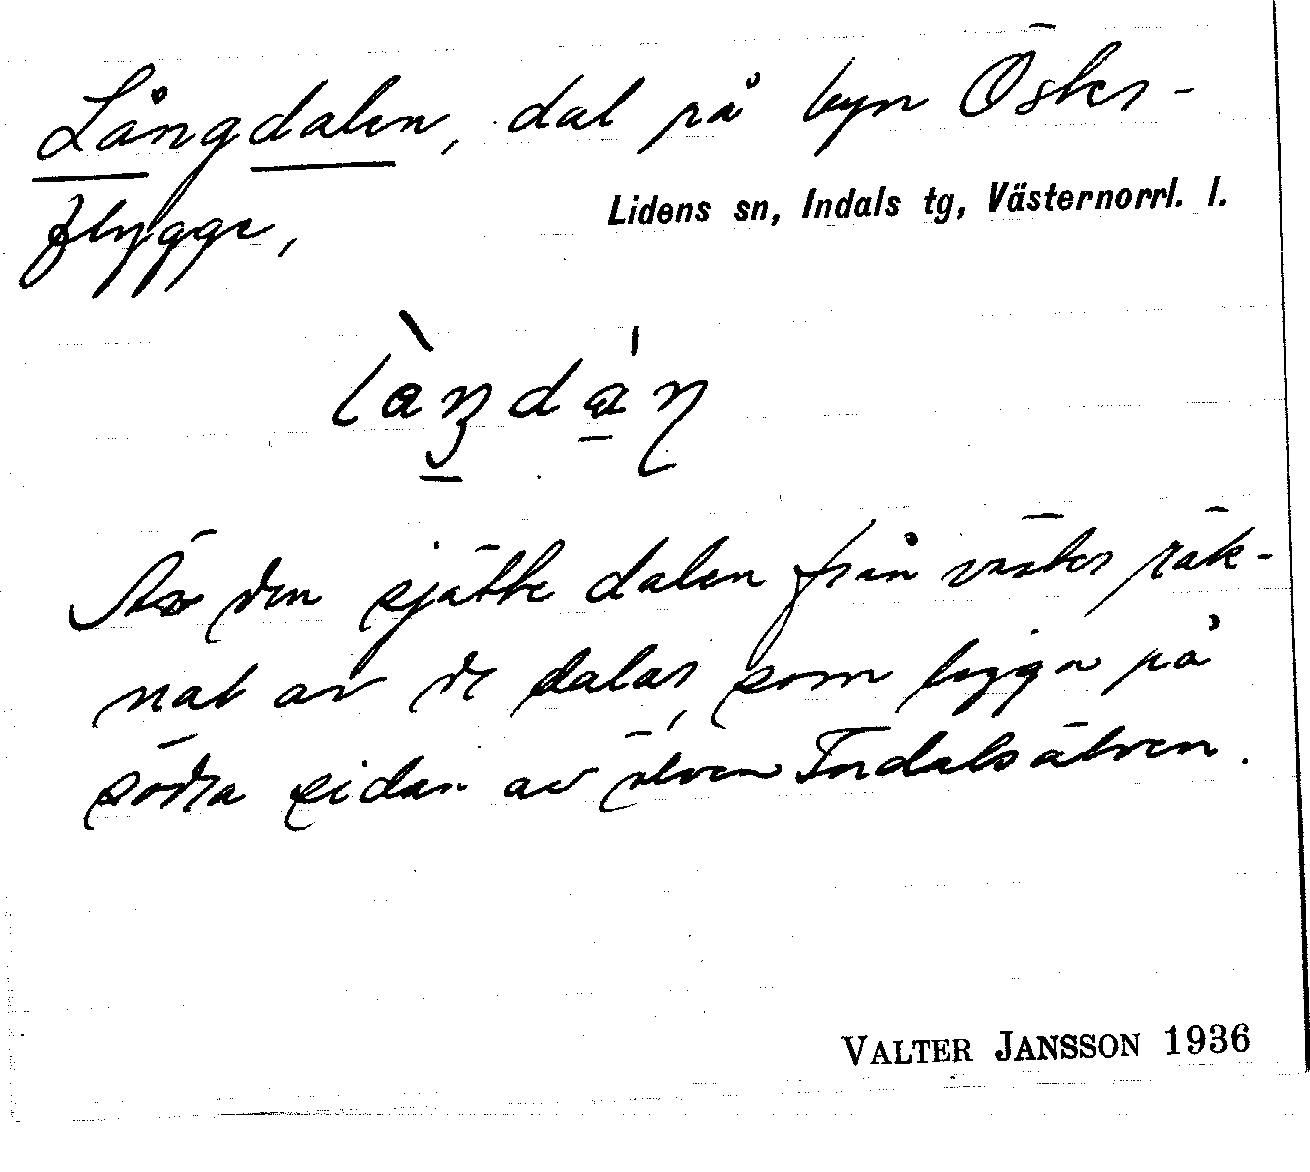 Långdalen, dal på byn Öster-
flygge,
Lidens sn, Indals tg, Västernorrl. l.
Är den sjätte dalen från väster räk-
nat av de dalar, som ligga på
södra sidan av älven Indalsälven.
VALTER JANSSON 1936